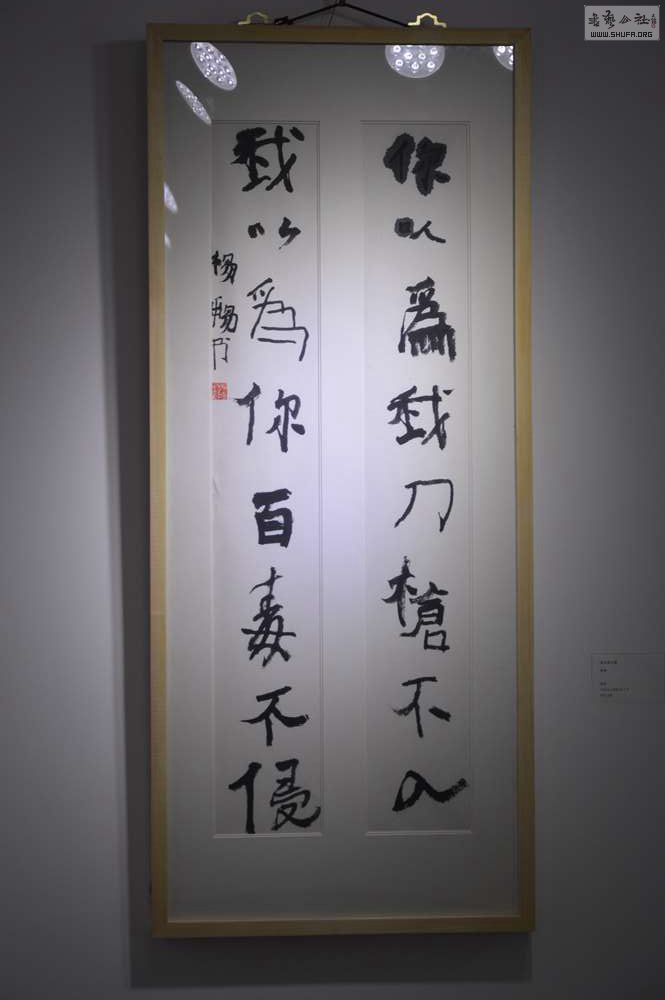 你以爲我刀槍不入
我以爲你百毒不侵
楊
书艺公社
WWW.SHUFA.ORG